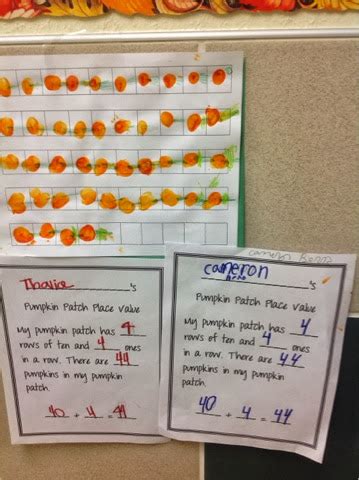 cameron
Thalia's
Pumpkin Patch Place Value
My pumpkin patch has 4
rows of ten and 4 ones
in a row. There are 44
pumpkins in my pumpkin
patch.
40 + 4 = 44
cameron's
Pumpkin Patch Place Value
My pumpkin patch has 4
rows of ten and 4 ones
in a row. There are 44
pumpkins in my pumpkin
patch.
40 + 4 = 44